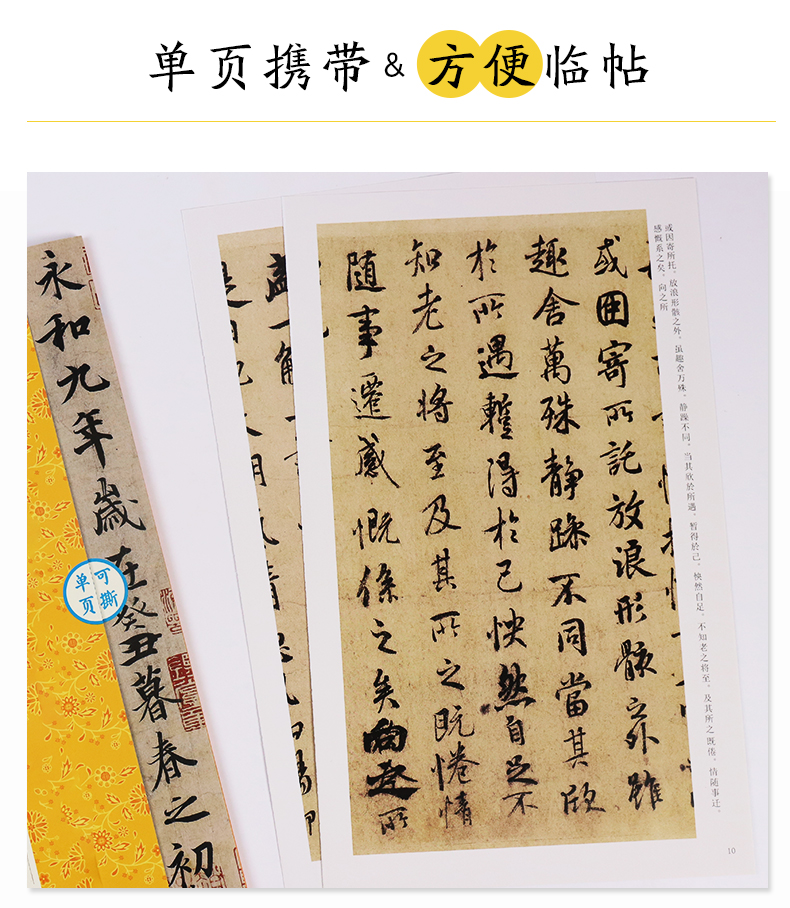 单页携带&方便临帖
永和九年歲在癸丑暮春之初
可撕
单页
或因寄所托，放浪形骸之外。虽趣舍万殊，静躁不同，当其欣於所遇，暂得於己，怏然自足，不知老之将至，及其所之既倦，情随事迁，
感慨系之矣。向之所
或因寄所託放浪形骸之外雖
趣舍萬殊静躁不同當其欣
於所遇蹔得於己怏然自足不
知老之將至及其所之既惓情
隨事遷感慨係之矣向之所
10